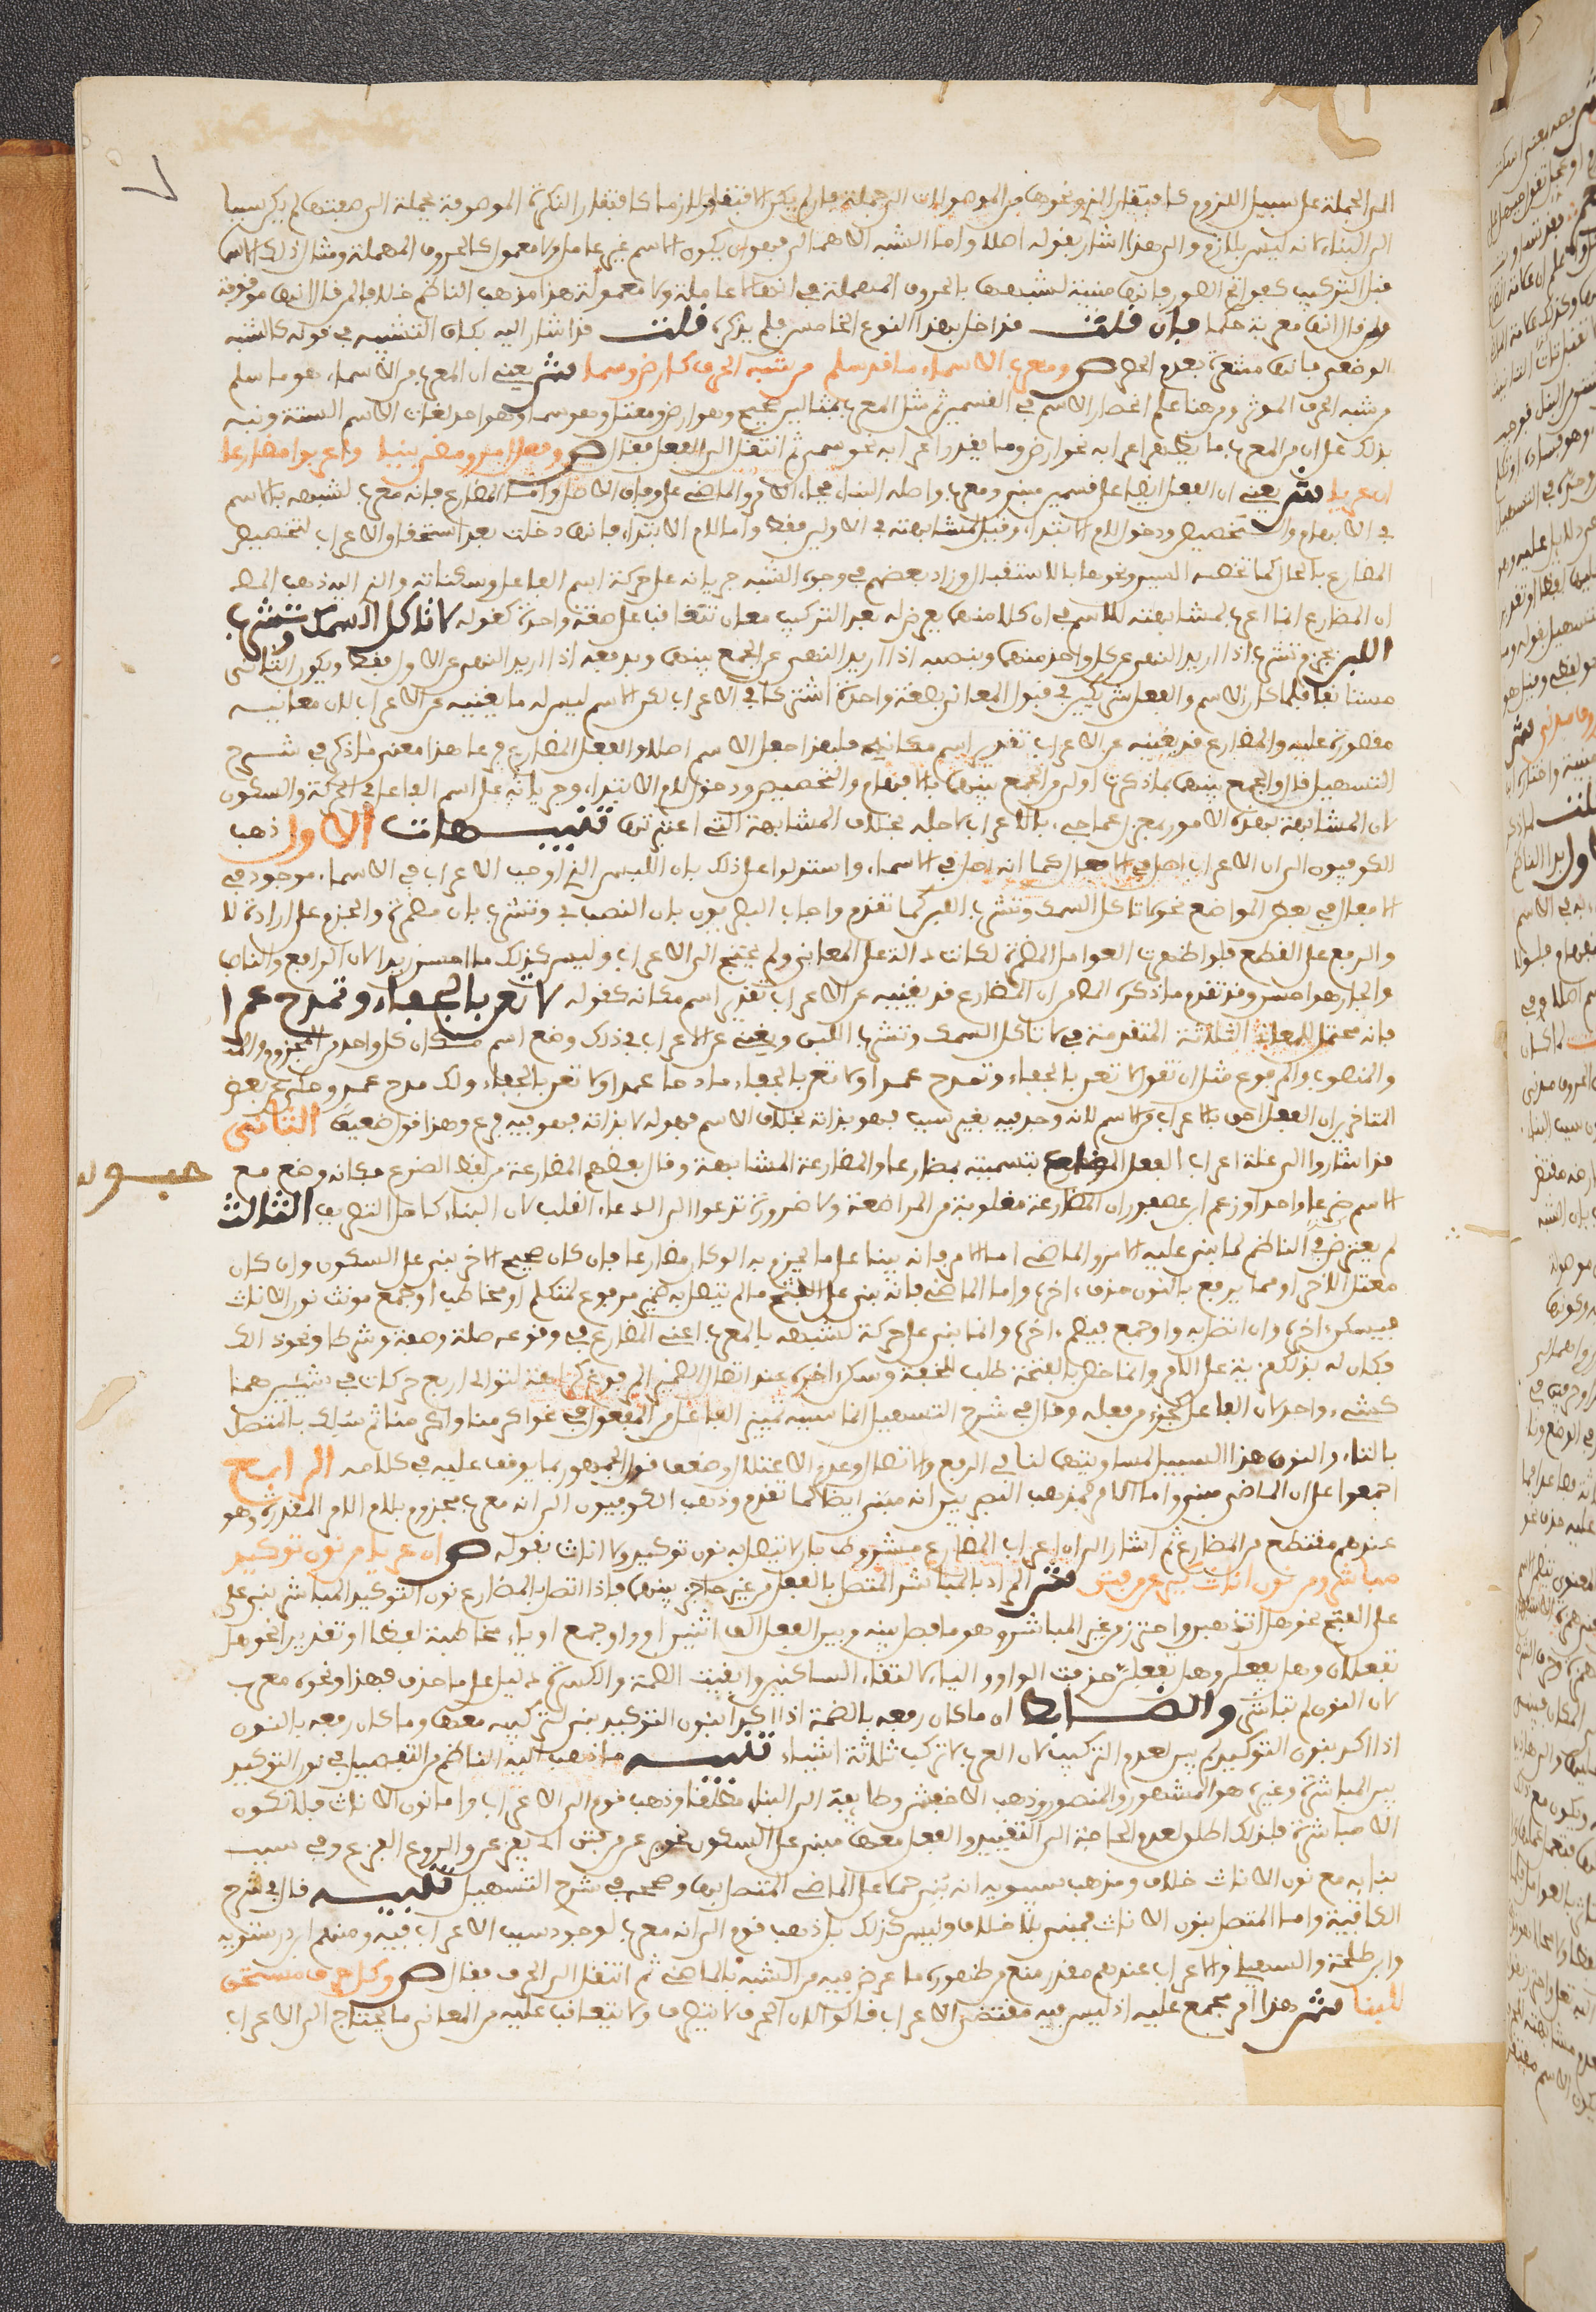 الى الجملة على سبيل اللزوم كافتقار الذي ونحوها من الموصولات الى جملة فان لم يكن الافتقار لازما كافتقار النكرة الموصوفة بجملة الى صفتها لم يكن سببا
الى البناء لانه ليس بلازم والى هذا اشار بقوله اصلا واما الشبه الاهمالي فهو ان يكون الاسم غير عامل ولا معمول كالحروف المهملة ومثال ذلك الاسماء
قبل التركيب كفواتح السور فانها مبنية لشبهها بالحروف المهملة في انها لا عاملة ولا معمولة هذا مذهب الناظم خلافا لمن قال انها موقوفة
ولمن قال انها معربة حكما فان قلت قد اخل بهذا النوع الخامس فلم يذكره قلت قد اشار اليه بكاف التشبيه في قوله كالشبه
الوضعي فانها مشعرة بعدم الحصر ص ومعرب الاسماء ما قد سلم من شبه الحرف كارض وسما ش يعني ان المعرب من الاسماء هو ما سلم
من شبه الحرف الموثر ومن هنا علم انحصار الاسم في القسمين ثم مثل المعرب بمثالين صحيح وهو ارض ومعتل وهو سما وهو احد لغات الاسم الستة ونبه
بذلك على ان من المعرب ما يظهر اعرابه نحو ارض وما يقدر اعرابه نحو سمى ثم انتقل الى الفعل فقال ص وفعل امر ومضي بنيا واعربوا مضارعا
ان عريا ش يعني ان الفعل ايضا على قسمين مبني ومعرب واصله البناء فجاء الامر والماضي على وفاق الاصل واما المضارع فانه معرب لشبهه بالاسم
في الابهام والتخصيص ودخول لام الابتداء وقيل المشابهة في الاولين فقط واما لام الابتداء فانها دخلت بعد استحقاق الاعراب لتخصيص
المضارع بالحال كما تخصه السين ونحوها بالاستقبال وزاد بعضهم في وجوه الشبه جريانه على حركة اسم الفاعل وسكناته والذي اليه ذهب المص
ان المضارع انما اعرب لمشابهته للاسم في ان كلا منهما يعرض له بعد التركيب معان تتعاقب على صيغة واحدة كقوله لا تاكل السمك وتشرب
اللبن بجزم وتشرب اذا اريد النهي عن كل واحد منهما وينصبه اذا اريد النهي عن الجمع بينهما وبرفعه اذا اريد النهي عن الاول فقط ويكون الثاني
مستانفا فلما كان الاسم والفعل شريكين في قبول المعاني بصيغة واحدة اشتركا في الاعراب لكن الاسم ليس له ما يغنيه عن الاعراب لان معانيه
مقصورة عليه والمضارع قد يغنيه عن الاعراب تقدير اسم مكانه فلهذا جعل الاسم اصلا والفعل المضارع فرعا هذا معنى ما ذكر في شرح
التسهيل قال والجمع بينهما بما ذكرت اولى من الجمع بينهما بالابهام والتخصيص ودخول لام الابتداء وجريانه على اسم الفاعل في الحركة والسكون
لان المشابهة بهذه الامور بمعزل عما جيء بالاعراب لاجله بخلاف المشابهة التي اعتبرتها تنبيهات الاول ذهب
الكوفيون الى ان الاعراب اصل في الافعال كما انه اصل في الاسماء واستدلوا على ذلك بان اللبس الذي اوجب الاعراب في الاسماء موجود في
الافعال في بعض المواضع نحو لا تاكل السمك وتشرب اللبن كما تقدم واجاب البصريون بان النصب في وتشرب بان مضمرة والجزم على ارادة لا
والرفع على القطع فلو اظهرت العوامل المضمرة لكانت دالة على المعاني ولم يحتج الى الاعراب وليس كذلك ما احسن زيدا لان الرافع والناصب
والجار هو احسن وقد تقدم ما ذكره المص من ان المضارع قد يغنيه عن الاعراب تقدير اسم مكانه كقوله لا تعن بالجفاء وتمدح عمرا
فانه محتمل للمعاني الثلاثة المتقدمة في لا تاكل السمك وتشرب اللبن ويغني عن الاعراب في ذلك وضع اسم مكان كل واحد من المجزوم
والمنصوب والمرفوع مثل ان تقول لا تعن بالجفاء وتمدح عمرا ولا تعن بالجفاء مادحا عمرا ولا تعن بالجفاء ولك مدح عمرو وحكي عن بعض
المتاخرين ان الفعل احق بالاعراب من الاسم لانه وجد فيه بغير سبب فهو بذاته بخلاف الاسم فهو له لا بذاته فهو فيه فرع وهذا قول ضعيف الثاني
قد اشاروا الى علة اعراب الفعل المضارع بتسميته مضارعا والمضارعة المشابهة وقال بعضهم المضارعة من لفظ الضرع فكانه وضع مع
الاسم ضرعا واحدا وزعم ابن عصفور ان المضارعة مقلوبة من المراضعة ولا ضرورة تدعوا الى ادعاء القلب لان البناء كامل التصريف الثالث
لم يتعرض الناظم لما بني عليه الامر والماضي اما الامر فانه يبنا على ما يجزم به لو كان مضارعا فان كان صحيح الاخر بني على السكون وان كان
معتل الاخر او مما يرفع بالنون حذف اخره واما الماضي فانه بني على الفتح ما لم يتصل به ضمير مرفوع لمتكلم او مخاطب او جمع مونث نون الاناث
فيسكن اخره وان اتصل به واو جمع فيضم اخره وانما بني على حركة لشبهه بالمعرب اعني المضارع في وقوعه صلة وصفة وشرطا ونحو ذلك
فكان له بذلك مزية على الامر وانما خص بالفتحة طلب للخفة وسكن اخره عند اتصال الضمير المرفوع كراهة توالي اربع حركات في شيئين هما
كشيء واحد لان الفاعل كجزء من فعله وقال في شرح التسهيل انما سببه تمييز الفاعل من المفعول في نحو اكرمنا واكرمنا ثم سلك بالمتصل
بالتاء والنون هذا السبيل لمساويتهما لنا في الرفع والاتصال وعدم الاعتلال وضعف قول الجمهور بما يوقف عليه في كلامه الرابع
اجمعوا على ان الماضي مبني واما الامر فمذهب البصريين انه مبني ايضا كما تقدم وذهب الكوفيون الى انه معرب مجزوم بلام الامر المقدرة وهو
عندهم مقتطع من المضارع ثم اشار الى ان اعراب المضارع مشروط بان لا تتصل به نون توكيد ولا اناث بقوله ص ان عريا من نون توكيد
مباشر ومن نون اناث كيرعن من فتن ش المراد بالمباشر المتصل بالفعل من غير حاجز بينهما فاذا اتصل بالمضارع نون التوكيد المباشر بني على
على الفتح نحو هل تذهبن واحترز من غير المباشر وهو ما فصل بينه وبين الفعل الف اثنين او واو جمع او ياء مخاطبة لفظا او تقديرا نحو هل
تفعلان وهل تفعلن وهل تفعلن حذفت الواو والياء لالتقاء الساكنين وابقيت الضمة والكسرة دليلا على ما حذف فهذا ونحوه معرب
لان النون لم تباشر والضابط ان ما كان رفعه بالضمة اذا اكد بنون التوكيد بني لتركيبه معها وما كان رفعه بالنون
اذا اكد بنون التوكيد لم يبن لعدم التركيب لان العرب لا تركب ثلاثة اشياء تنبيه ما ذهب اليه الناظم من التفصيل في نون التوكيد
بين المباشرة وغيرها هو المشهور والمنصور وذهب الاخفش وطايفة الى البناء مطلقا وذهب قوم الى الاعراب واما نون الاناث فلا تكون
الا مباشرة فلذلك اطلق لعدم الحاجة الى التقييد والفعل معها مبني على السكون نحو يرعن من فتن اي يفزعن والروع الفزع وفي سبب
بنايه مع نون الاناث خلاف ومذهب سيبويه انه بني حملا على الماضي المتصل بها وصححه في شرح التسهيل تنبيه قال في شرح
الكافية واما المتصل بنون الاناث فمبني بلا خلاف وليس كذلك بل ذهب قوم الى انه معرب لوجود سبب الاعراب فيه ومنهم ابن درستويه
وابن طلحة والسهيلي والاعراب عندهم مقدر منع من ظهوره ما عرض فيه من الشبه بالماضي ثم انتقل الى الحرف فقال ص وكل حرف مستحق
للبنا ش هذا امر مجمع عليه اذ ليس فيه مقتضى الاعراب قالوا لان الحرف لا يتصرف ولا يتعاقب عليه من المعاني ما يحتاج الى الاعراب